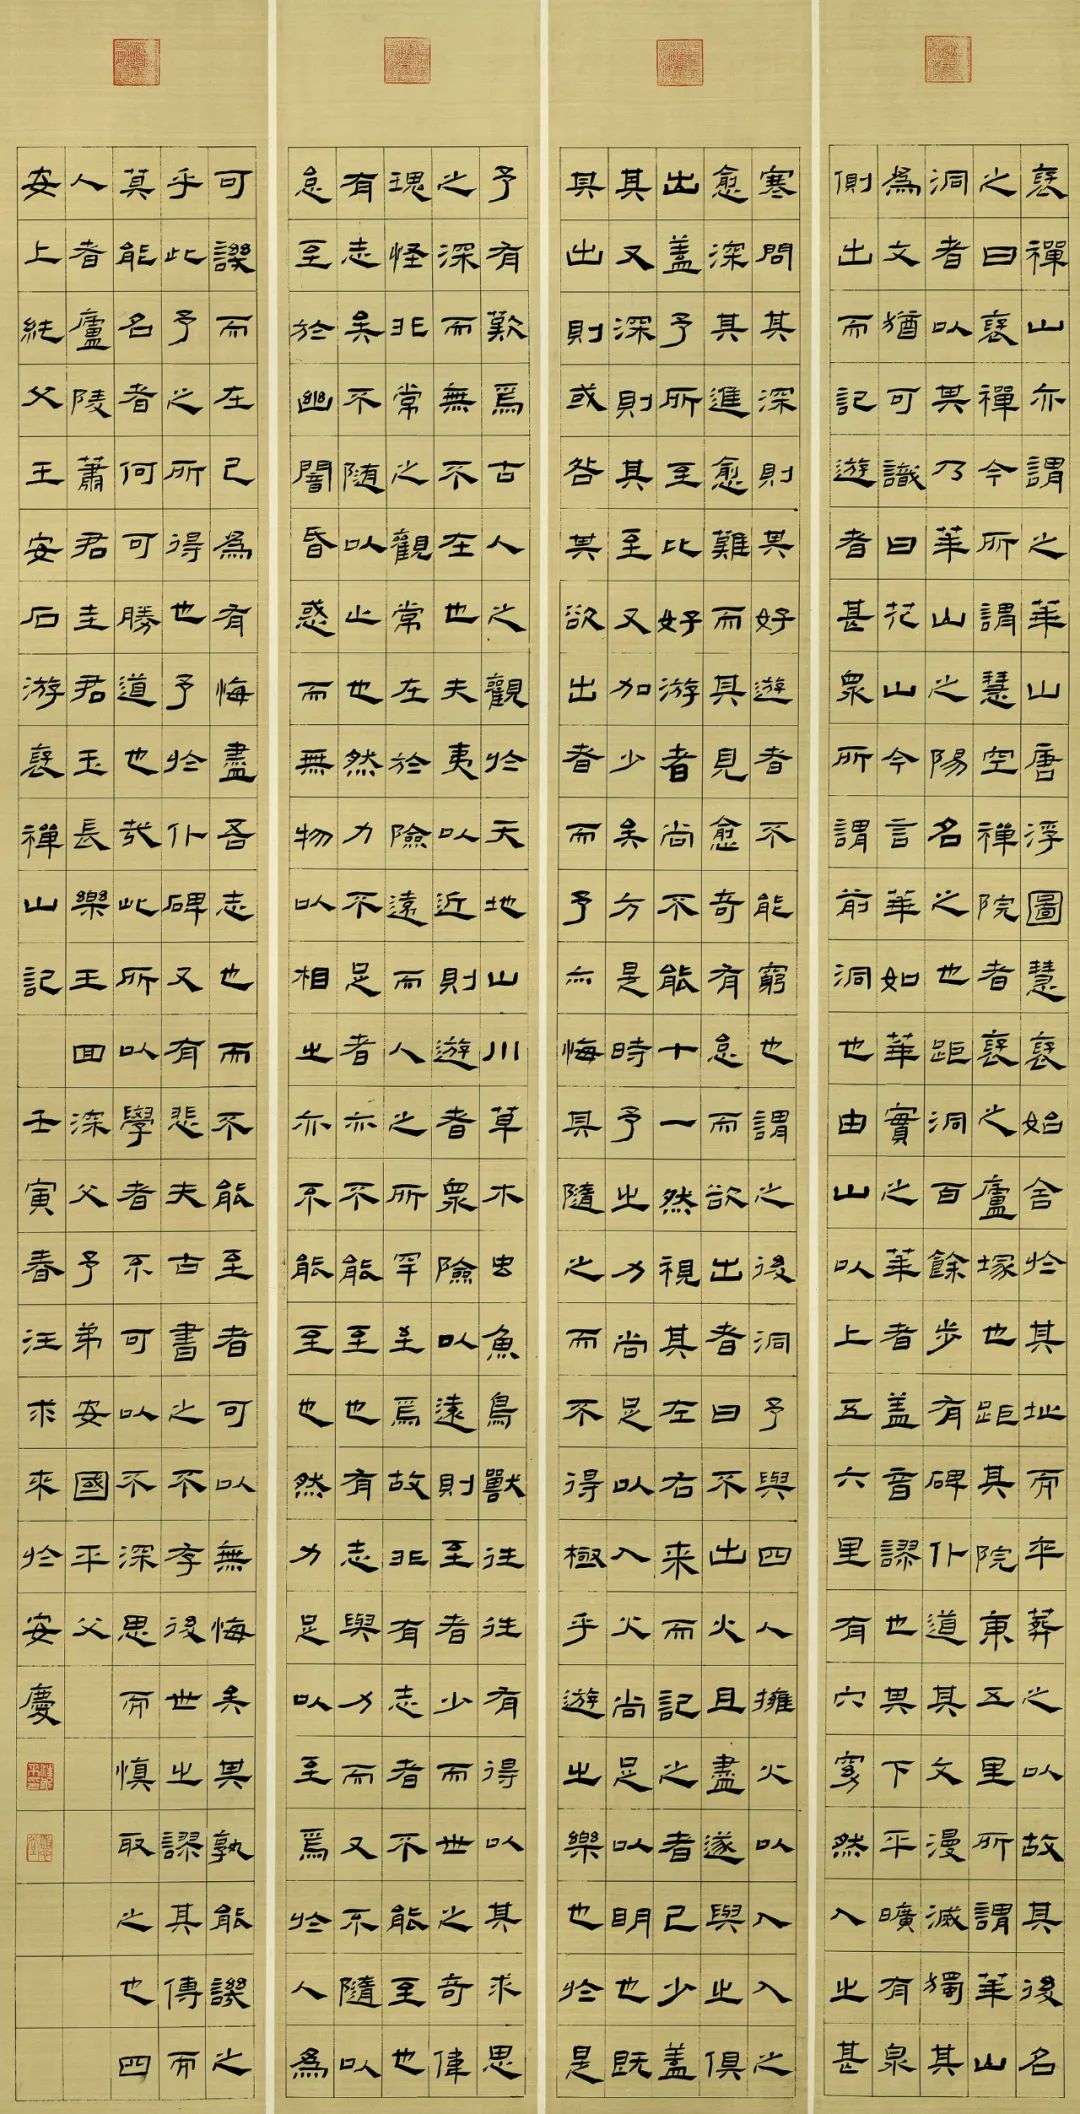 褒禪山亦謂之華山唐浮圖慧褒始舍於其址而卒葬之以故其後名
之曰褒禪今所謂慧空禪院者褒之廬塚也距其院東五里所謂華山
洞者以其乃華山之陽名之也距洞百餘步有碑仆道其文漫滅獨其
為文猶可識曰花山今言華如華實之華者蓋音謬也其下平曠有泉
側出而記遊者甚眾所謂前洞也由山以上五六里有穴窈然入之甚
寒問其深則其好遊者不能窮也謂之後洞予與四人擁火以入入之
愈深其進愈難而其見愈奇有怠而欲出者曰不出火且盡遂與之俱
出蓋予所至比好游者尚不能十一然視其左右来而記之者已少蓋
其又深則其至又加少矣方是時予之力尚足以入火尚足以明也既
其出則或咎其欲出者而予亦悔其隨之而不得極乎遊之樂也於是
予有歎焉古人之觀於天地山川草木虫魚鳥獸往往有得以其求思
之深而無不在也夫夷以近則遊者眾險以遠則至者少而世之奇偉
瑰怪非常之觀常在於險遠而人之所罕至焉故非有志者不能至也
有志矣不随以止也然力不足者亦不能至也有志與力而又不隨以
怠至於幽闇昏惑而無物以相之亦不能至也然力足以至焉於人為
可譏而在己為有悔盡吾志也而不能至者可以無悔矣其孰能譏之
乎此予之所得也予於仆碑又有悲夫古書之不存後世之謬其傳而
莫能名者何可勝道也哉此所以學者不可以不深思而慎取之也四
人者廬陵蕭君圭君玉長樂王回深父予弟安國平父
安上純父王安石游褒禪山記 壬寅春汪求來於安慶